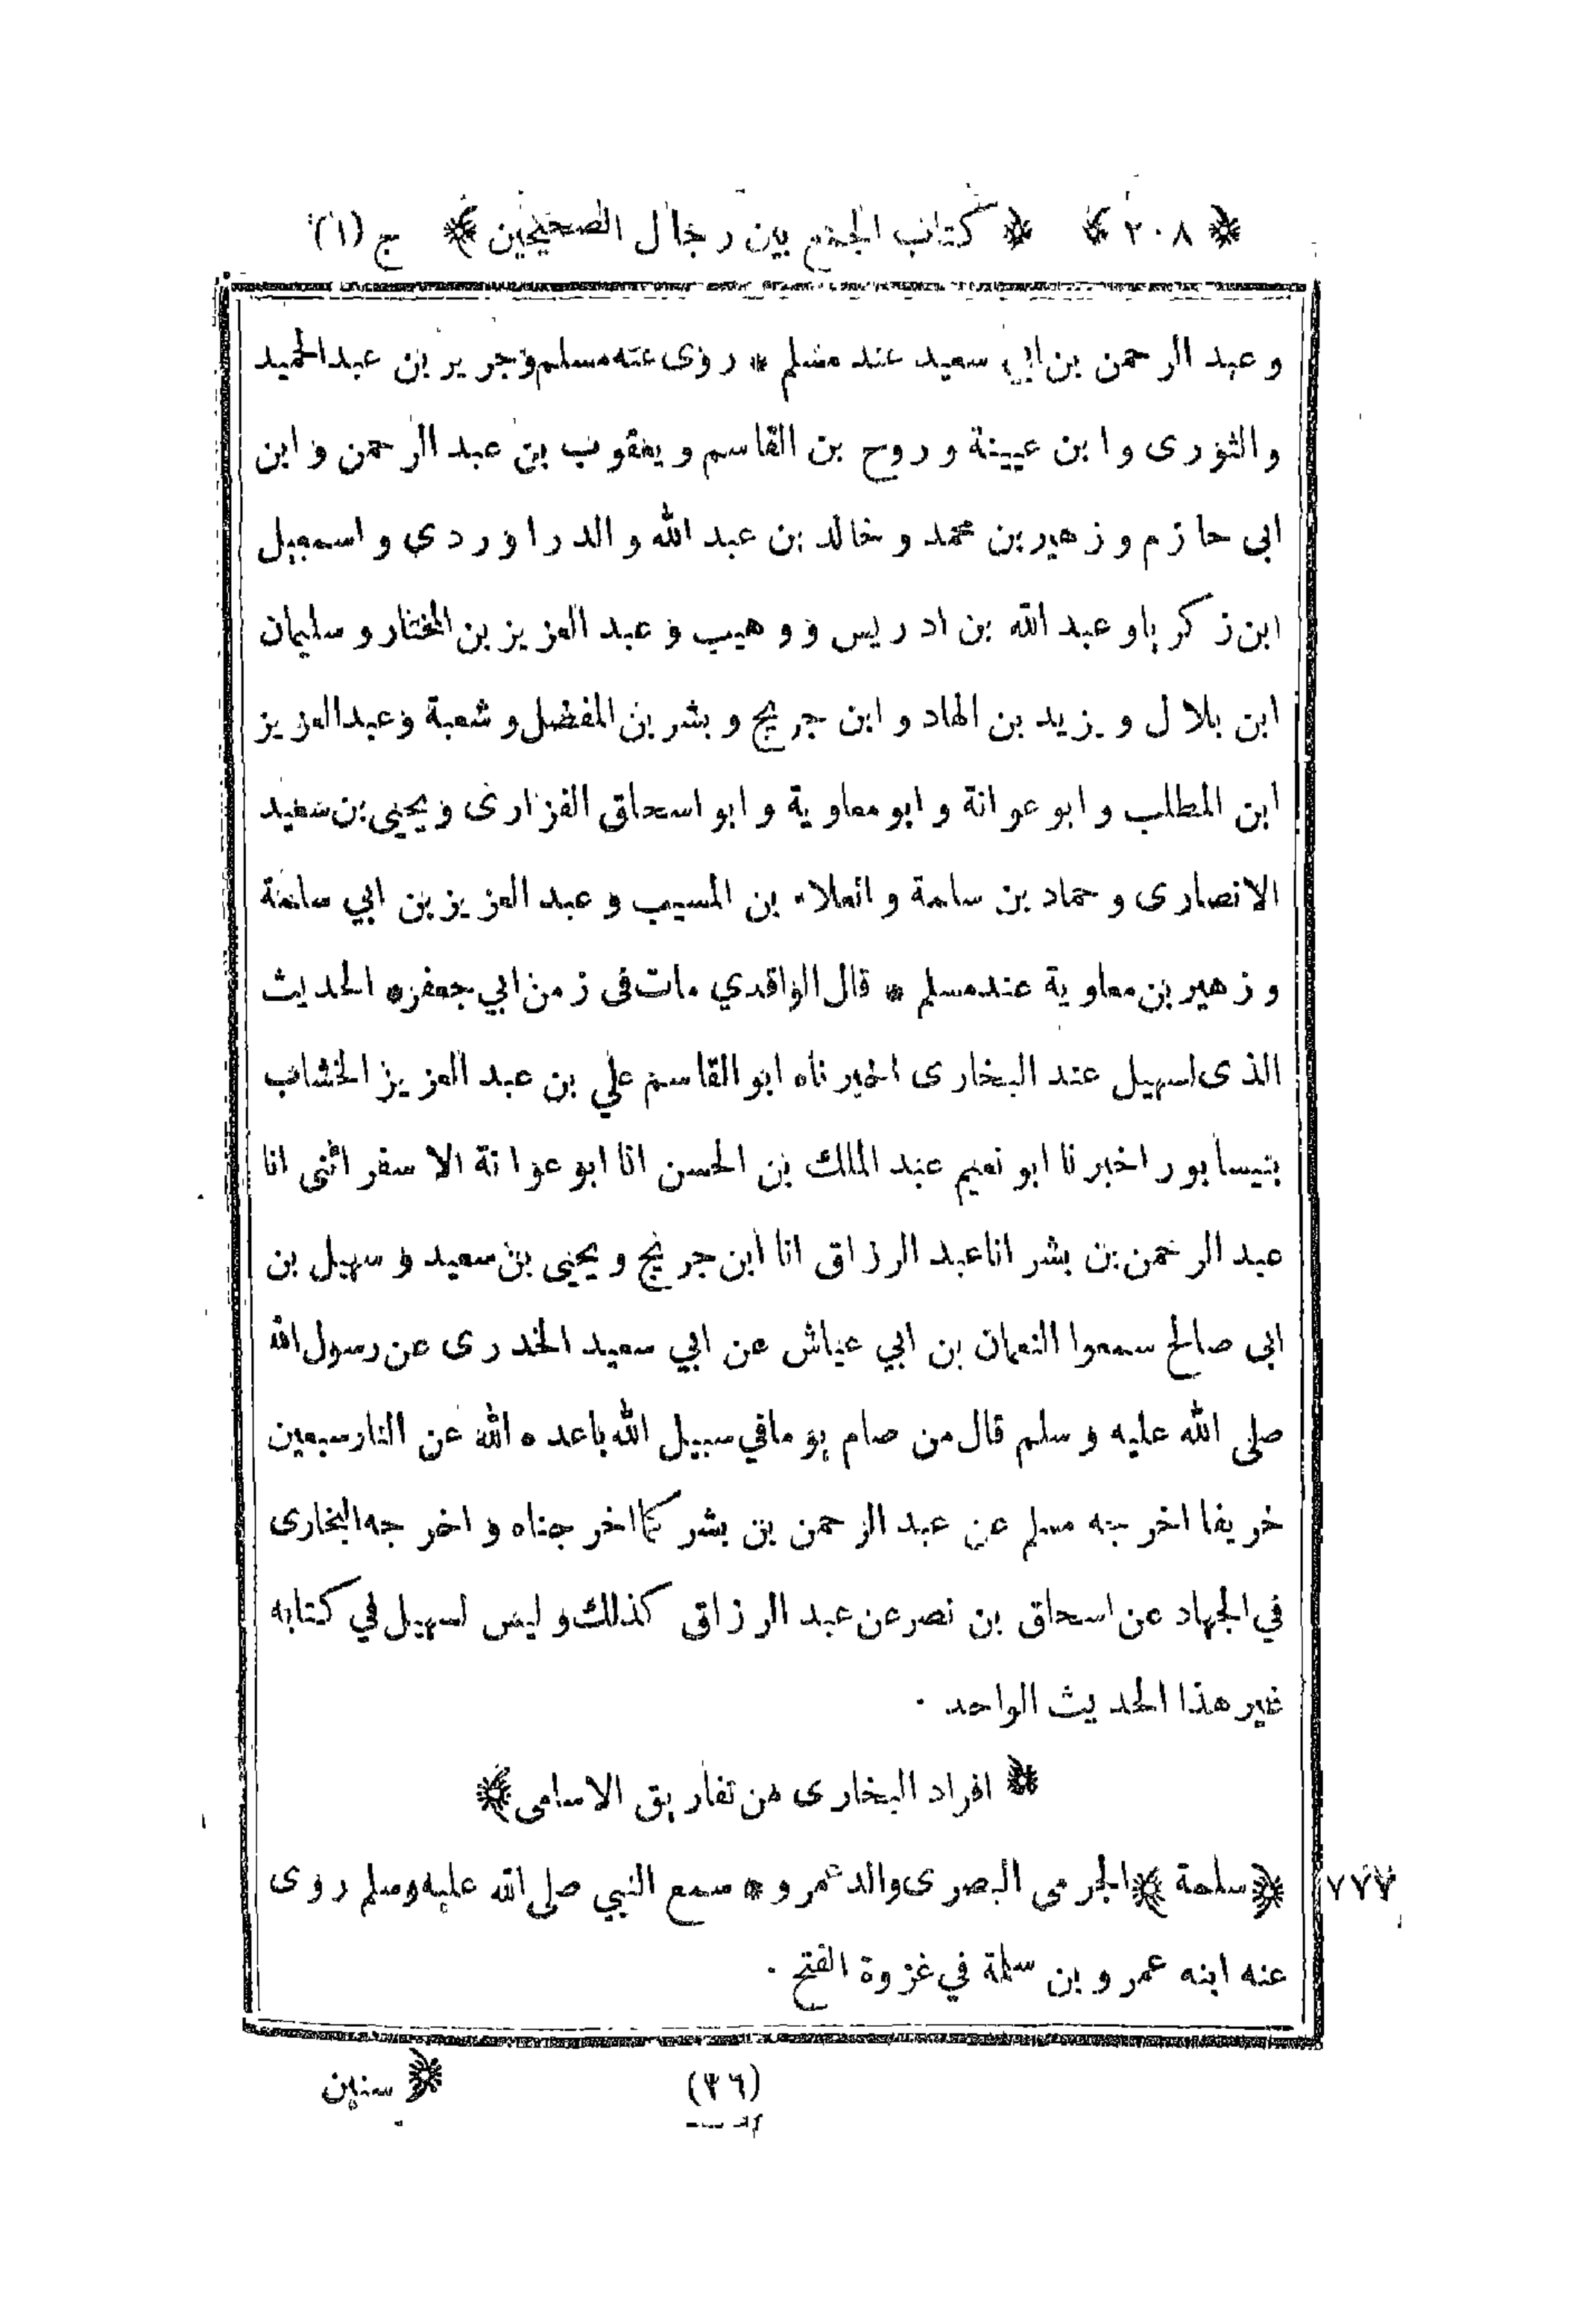 ﴿ ٢٠٨ ﴾ ﴿ كتاب الجمع بين رجال الصحيحين ﴾ ج (١)
وعبد الرحمن بن ابي سعيد عند مسلم * روى عنه مسلم وجرير بن عبد الحميد
والثورى وابن عيينة وروح بن القاسم ويعقوب بن عبد الرحمن وابن
ابى حازم وزهير بن محمد وخالد بن عبد الله والدراوردي واسمعيل
ابن زكريا وعبد الله بن ادريس ووهيب وعبد العزيز بن المختار وسليمان
ابن بلال ويزيد بن الهاد وابن جريج وبشر بن المفضل وشعبة وعبد العزيز
ابن المطلب وابو عوانة وابو معاوية وابو اسحاق الفزارى ويحيى بن سعيد
الانصارى وحماد بن سلمة والعلاء بن المسيب وعبد العزيز بن ابي سلمة
وزهير بن معاوية عند مسلم * قال الواقدي مات فى زمن ابي جعفر * الحديث
الذى لسهيل عند البخارى اخبرناه ابو القاسم علي بن عبد العزيز الخشاب
بنيسابور اخبرنا ابو نعيم عبد الملك بن الحسن انا ابو عوانة الاسفرائنى انا
عبد الرحمن بن بشر انا عبد الرزاق انا ابن جريج ويحيى بن سعيد وسهيل بن
ابى صالح سمعوا النعمان بن ابي عياش عن ابي سعيد الخدرى عن رسول الله
صلى الله عليه وسلم قال من صام يوما في سبيل الله باعده الله عن النار سبعين
خريفا اخرجه مسلم عن عبد الرحمن بن بشر كما اخرجناه واخرجه البخارى
في الجهاد عن اسحاق بن نصر عن عبد الرزاق كذلك وليس لسهيل في كتابه
غير هذا الحديث الواحد ٠
﴿ افراد البخارى من تفاريق الاسامى ﴾
٧٧٧ ﴿ سلمة ﴾ الجرمى البصرى والد عمرو * سمع النبي صلى الله عليه وسلم روى
عنه ابنه عمرو بن سلمة في غزوة الفتح ٠
(٢٦) ﴿ سنين